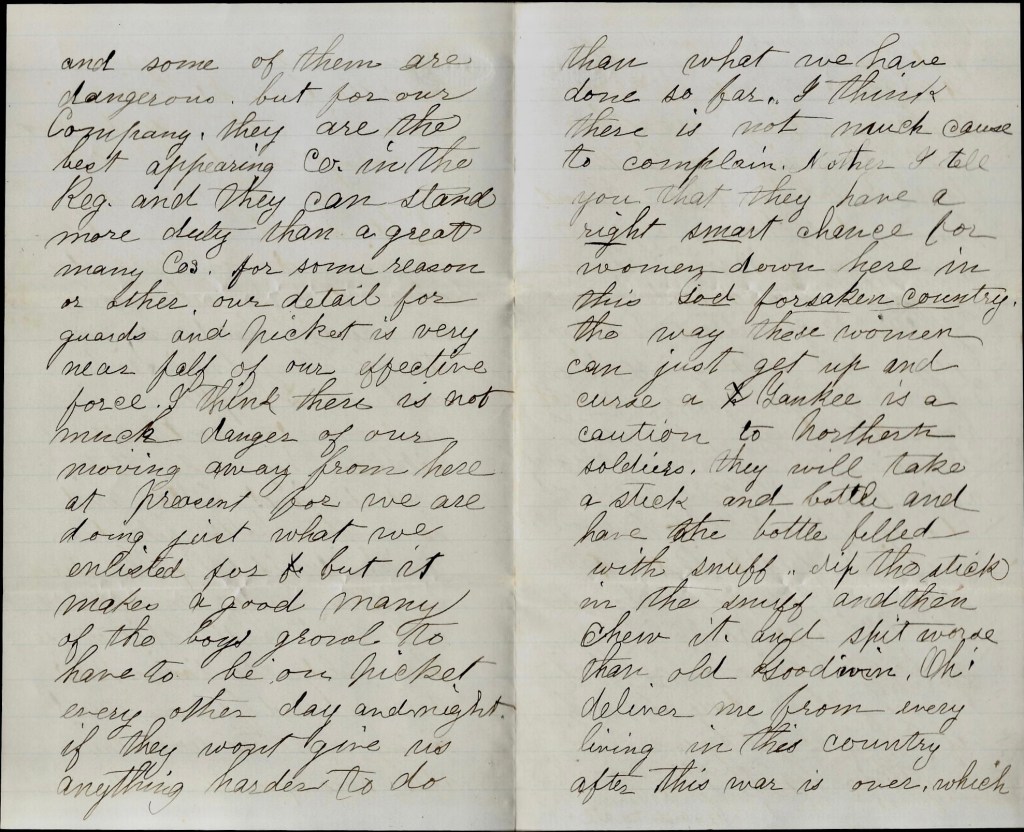 and some of them are
dangerous. but for our
Company. they are the
best appearing Co. in the
Reg. and they can stand
more duty than a great
many Cos. for some reason
or other, our detail for
guards and picket is very
near half of our effective
force. I think there is not
much danger of our
moving away from here
at present for we are
doing just what we
enlisted for but it
makes a good many
of the boys growl to
have to be on picket
every other day and night.
if they wont give us
anything harder to do
than what we have
done so far. I think
there is not much cause
to complain. Mother I tell
you that they have a
right smart chance for
women down here in
this God forsaken country.
the way these women
can just get up and
curse a Yankee is a
caution to Northern
soldiers. they will take
a stick and bottle and
have the bottle filled
with snuff. dip the stick
in the snuff and then
chew it. and spit worse
than old Goodwin. Oh!
deliver me from every
living in this country
after this war is over, which